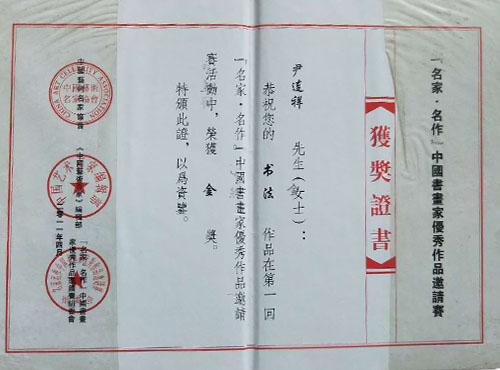 『名家·名作』中國書畫家優秀作品邀請賽
獲獎證書
尹連祥 先生(女士):
恭祝您的 书法 作品在第一回
『名家·名作』中國書畫家優秀作品邀請
賽活動中,榮獲 金 獎。
特頒此證,以爲資鑒。
中國藝術名家協會
《中國藝術家》編輯部
『名家·名作』中國書畫
家優秀作品邀請賽組委會
二〇一一年四月
CHINA ART CELEBRITY ASSOCIATION
中國藝術
名家協會